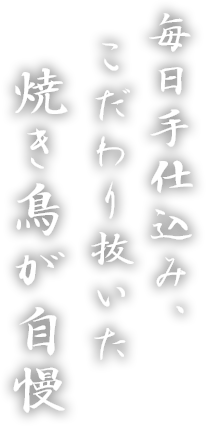 毎日手仕込み、
こだわり抜いた
焼き鳥が自慢